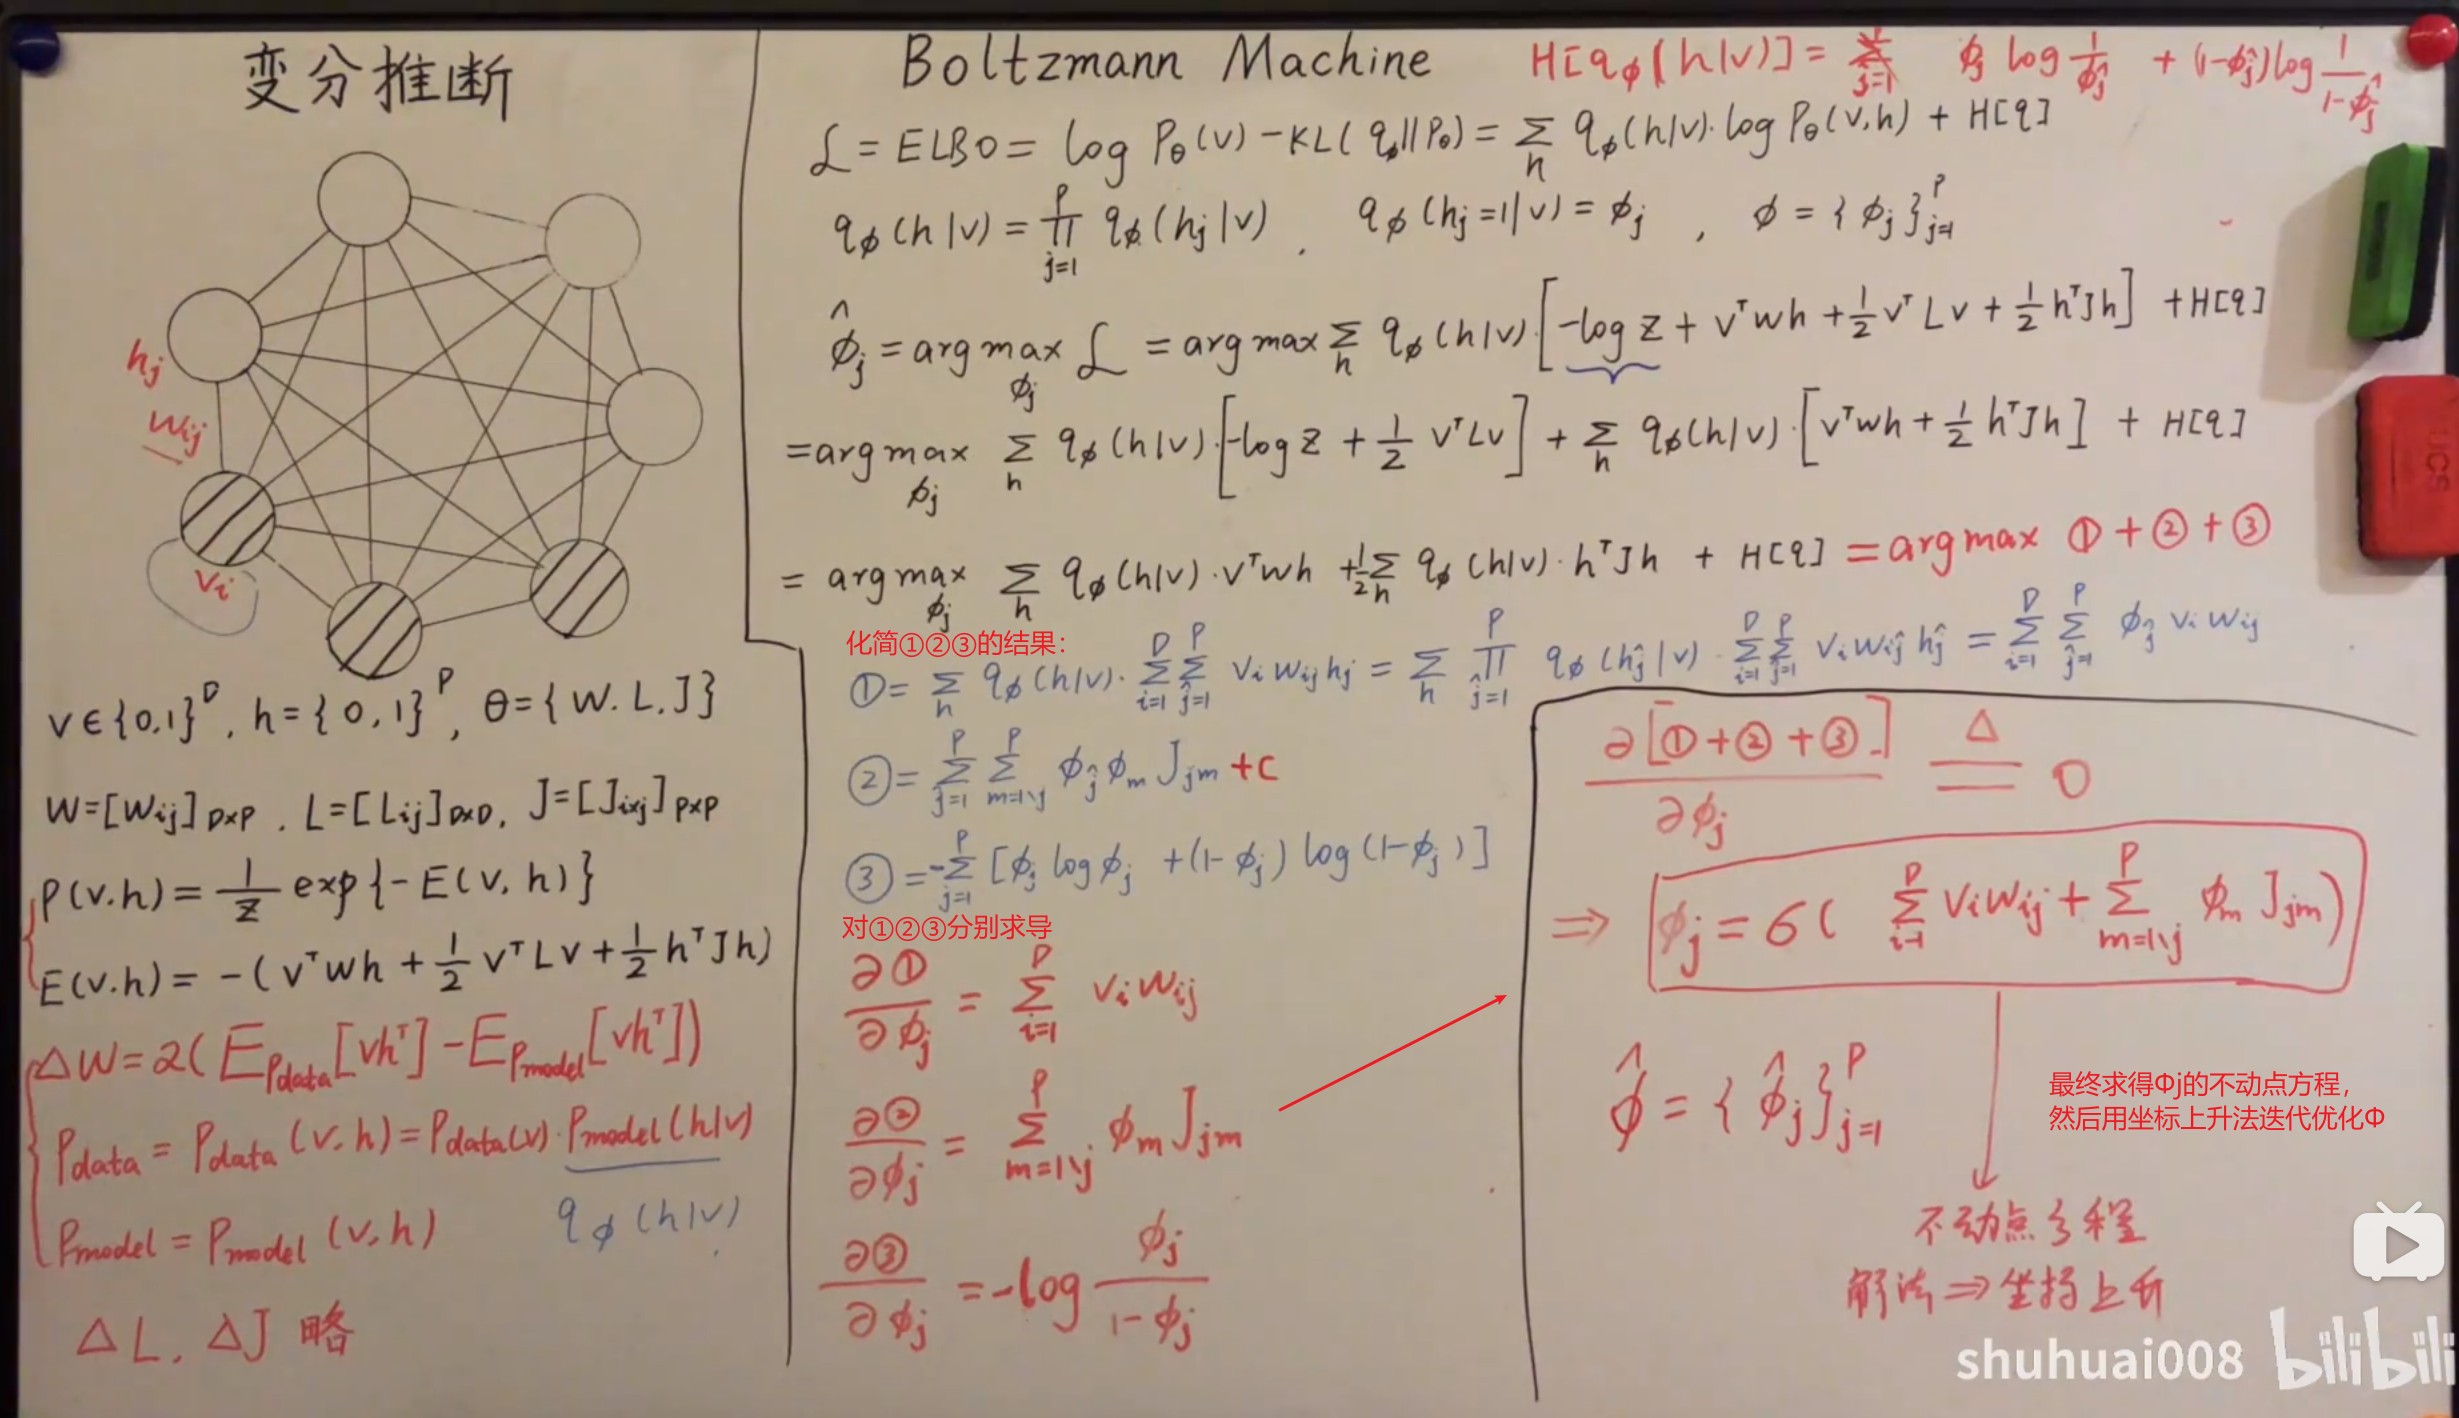 变分推断
h_j
w_ij
v_i
v∈{0,1}^D, h={0,1}^P, θ={W.L.J}
W=[w_ij]_{D×P}, L=[L_ij]_{D×D}, J=[J_{i×j}]_{P×P}
P(v.h)=1/Z exp{-E(v,h)}
E(v.h)=-(v^T w h+1/2 v^T L v+1/2 h^T J h)
ΔW=α(E_{Pdata}[vh^T]-E_{Pmodel}[vh^T])
Pdata=Pdata(v.h)=Pdata(v)·Pmodel(h|v)
q_ϕ(h|v)
Pmodel=Pmodel(v.h)
ΔL, ΔJ 略
Boltzmann Machine
H[q_ϕ(h|v)]=Σ_{ĵ=1} ϕ_ĵ log 1/ϕ_ĵ + (1-ϕ_ĵ)log 1/(1-ϕ_ĵ)
ℒ=ELBO=log P_θ(v)-KL(q_ϕ||P_θ)=Σ_h q_ϕ(h|v)·log P_θ(v,h)+H[q]
q_ϕ(h|v)=∏_{j=1}^P q_ϕ(h_j|v), q_ϕ(h_j=1|v)=ϕ_j, ϕ={ϕ_j}_{j=1}^P
ϕ̂_j=arg max_{ϕ_j} ℒ=arg max Σ_h q_ϕ(h|v)·[-log Z+v^T w h+1/2 v^T L v+1/2 h^T J h]+H[q]
=arg max_{ϕ_j} Σ_h q_ϕ(h|v)·[-log Z+1/2 v^T L v]+Σ_h q_ϕ(h|v)·[v^T w h+1/2 h^T J h]+H[q]
=arg max_{ϕ_j} Σ_h q_ϕ(h|v)·v^T w h+1/2 Σ_h q_ϕ(h|v)·h^T J h+H[q]=arg max ①+②+③
化简①②③的结果：
①=Σ_h q_ϕ(h|v)·Σ_{i=1}^D Σ_{ĵ=1}^P v_i w_ij h_j=Σ_h ∏_{ĵ=1}^P q_ϕ(h_ĵ|v)·Σ_{i=1}^D Σ_{ĵ=1}^P v_i w_iĵ h_ĵ=Σ_{i=1}^D Σ_{ĵ=1}^P ϕ_ĵ v_i w_ij
②=Σ_{ĵ=1}^P Σ_{m=1\j}^P ϕ_ĵ ϕ_m J_jm+C
③=-Σ_{j=1}^P [ϕ_j log ϕ_j+(1-ϕ_j) log(1-ϕ_j)]
对①②③分别求导
∂①/∂ϕ_j=Σ_{i=1}^D v_i w_ij
∂②/∂ϕ_j=Σ_{m=1\j}^P ϕ_m J_jm
∂③/∂ϕ_j=-log ϕ_j/(1-ϕ_j)
∂[①+②+③]/∂ϕ_j ≜ 0
⇒ ϕ_j=σ(Σ_{i=1}^D v_i w_ij+Σ_{m=1\j}^P ϕ_m J_jm)
ϕ̂={ϕ̂_j}_{j=1}^P
最终求得Φj的不动点方程，
然后用坐标上升法迭代优化Φ
不动点方程
解法⇒坐标上升
shuhuai008 bilibili